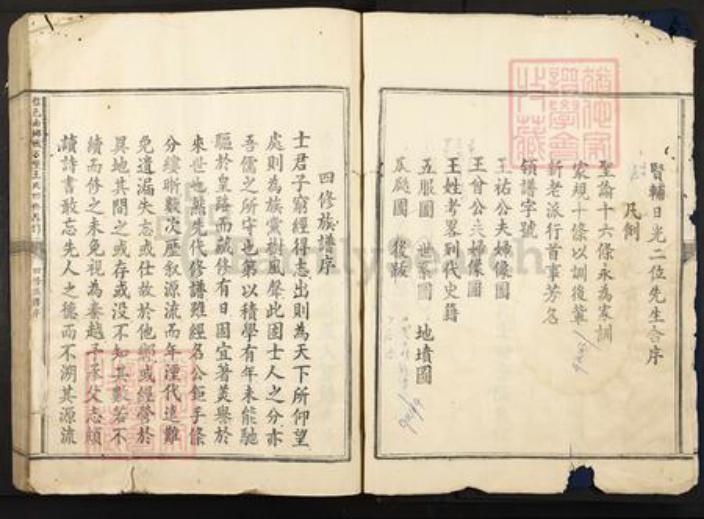 賢輔日光二位先生合序
凡例
聖諭十六條永為家訓
家規十條以訓後輩
新老派行首事芳名
領譜字號
王祐公夫婦像圖
王曾公夫婦像圖
王姓考畧列代史籍
五服圖 世系圖 地墳圖
瓜瓞圖 後跋
四修族譜序
士君子窮經得志出則為天下所仰望
處則為族黨樹風聲此固士人之分亦
吾儒之所守也第以積學有年未能馳
驅於皇路而藏修有日固宜著美譽於
來世也無先代修譜雖經名公鉅手條
分縷晰數次歷叙源流而年湮代遠難
免遺漏失忘或仕故於他鄉或經營於
異地其間之或存或没不知其數若不
續而修之未免視為秦越子承父志頗
讀詩書敢忘先人之德而不溯其源流
四修族譜序
FamilySearch